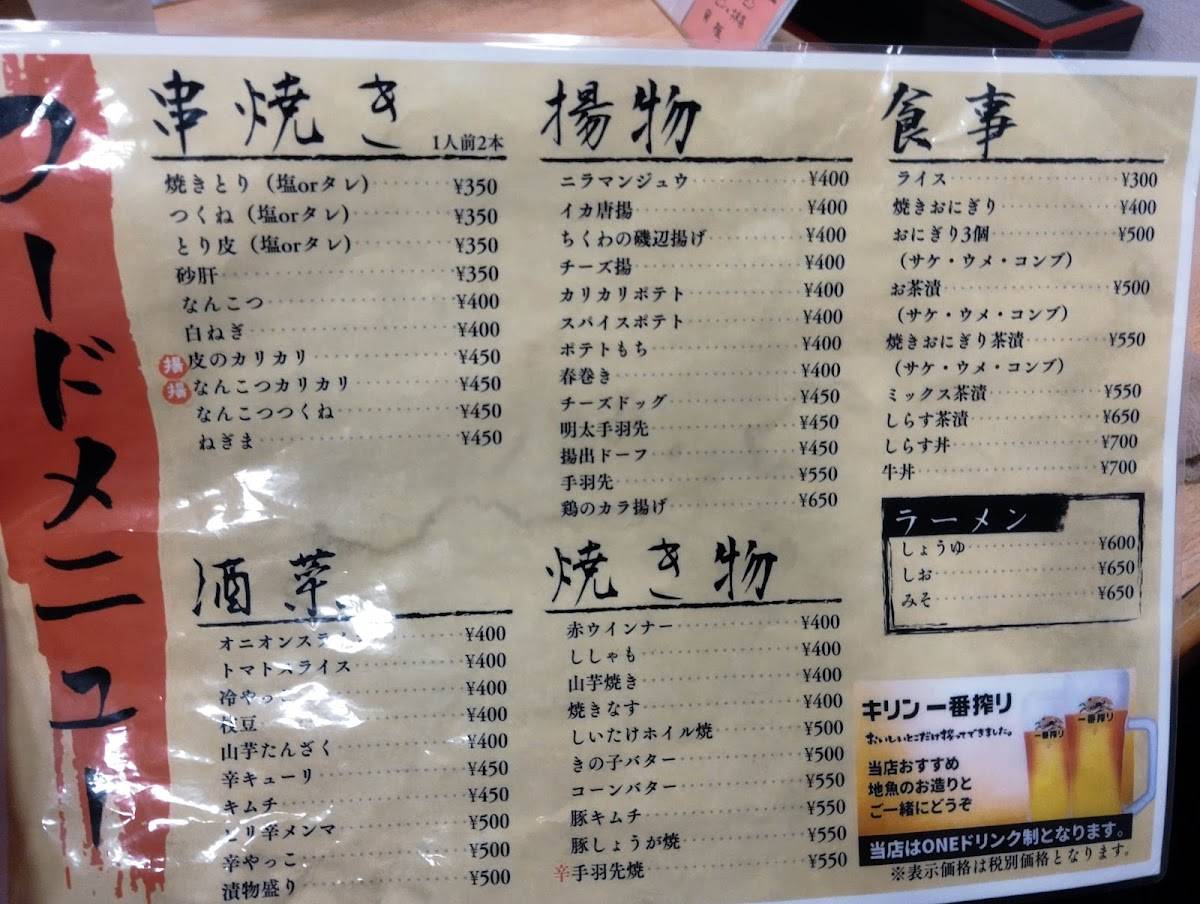 フードメニュー
串焼き
1人前2本
焼きとり（塩orタレ）¥350
つくね（塩orタレ）¥350
とり皮（塩orタレ）¥350
砂肝¥350
なんこつ¥400
白ねぎ¥400
揚 皮のカリカリ¥450
揚 なんこつカリカリ¥450
なんこつつくね¥450
ねぎま¥450
酒菜
オニオンスライス¥400
トマトスライス¥400
冷やっこ¥400
枝豆¥400
山芋たんざく¥450
辛キューリ¥450
キムチ¥450
ピリ辛メンマ¥500
辛やっこ¥500
漬物盛り¥500
揚物
ニラマンジュウ¥400
イカ唐揚¥400
ちくわの磯辺揚げ¥400
チーズ揚¥400
カリカリポテト¥400
スパイスポテト¥400
ポテトもち¥400
春巻き¥400
チーズドッグ¥450
明太手羽先¥450
揚出ドーフ¥450
手羽先¥550
鶏のカラ揚げ¥650
焼き物
赤ウインナー¥400
ししゃも¥400
山芋焼き¥400
焼きなす¥400
しいたけホイル焼¥500
きの子バター¥500
コーンバター¥550
豚キムチ¥550
豚しょうが焼¥550
辛手羽先焼¥550
食事
ライス¥300
焼きおにぎり¥400
おにぎり3個¥500
（サケ・ウメ・コンブ）
お茶漬¥500
（サケ・ウメ・コンブ）
焼きおにぎり茶漬¥550
（サケ・ウメ・コンブ）
ミックス茶漬¥550
しらす茶漬¥650
しらす丼¥700
牛丼¥700
ラーメン
しょうゆ¥600
しお¥650
みそ¥650
キリン一番搾り
おいしいとこだけ搾ってできました。
当店おすすめ
地魚のお造りと
ご一緒にどうぞ
一番搾り
一番搾り
当店はONEドリンク制となります。
※表示価格は税別価格となります。